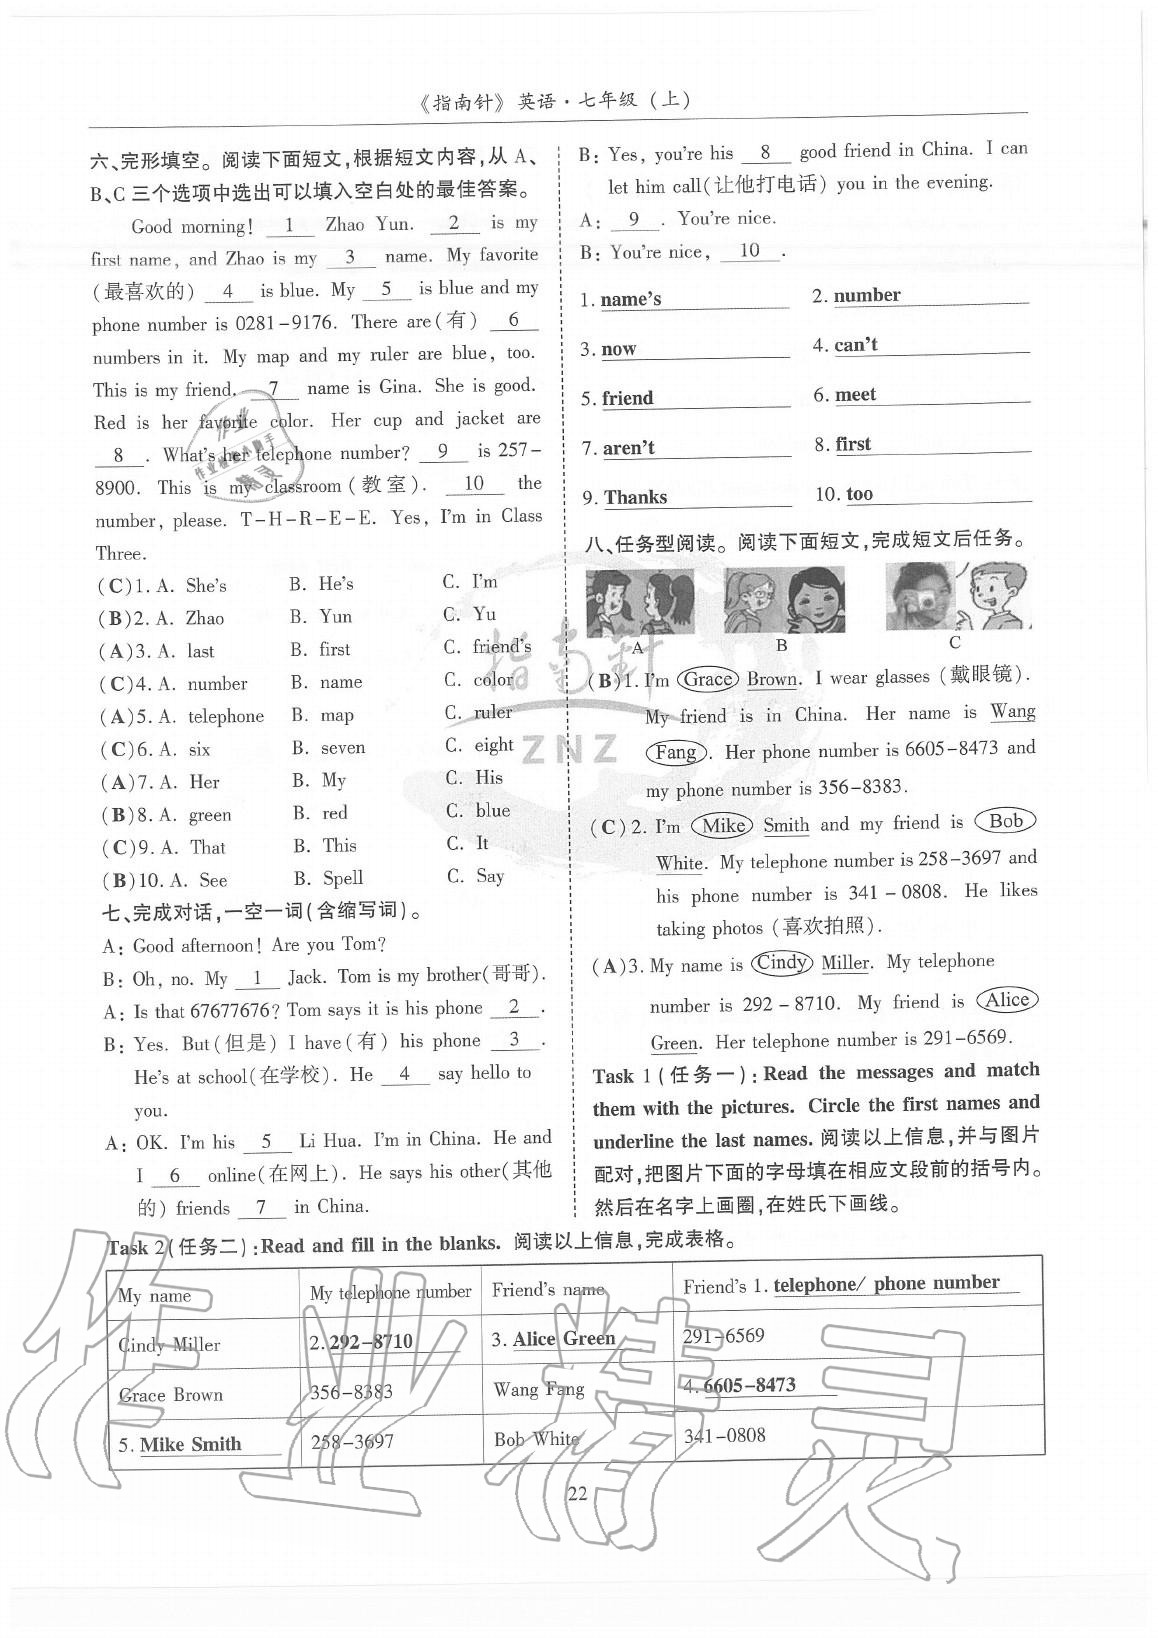 《指南针》英语·七年级(上)
六、完形填空。阅读下面短文,根据短文内容,从 A、
B、C 三个选项中选出可以填入空白处的最佳答案。
Good morning! 1 Zhao Yun. 2 is my
first name, and Zhao is my 3 name. My favorite
(最喜欢的) 4 is blue. My 5 is blue and my
phone number is 0281-9176. There are(有) 6
numbers in it. My map and my ruler are blue, too.
This is my friend. 7 name is Gina. She is good.
Red is her favorite color. Her cup and jacket are
8 . What's her telephone number? 9 is 257-
8900. This is my classroom(教室). 10 the
number, please. T-H-R-E-E. Yes, I'm in Class
Three.
(C)1. A. She's B. He's C. I'm
(B)2. A. Zhao B. Yun C. Yu
(A)3. A. last B. first C. friend's
(C)4. A. number B. name C. color
(A)5. A. telephone B. map C. ruler
(C)6. A. six B. seven C. eight
(A)7. A. Her B. My C. His
(B)8. A. green B. red C. blue
(C)9. A. That B. This C. It
(B)10. A. See B. Spell C. Say
七、完成对话,一空一词(含缩写词)。
A: Good afternoon! Are you Tom?
B: Oh, no. My 1 Jack. Tom is my brother(哥哥).
A: Is that 67677676? Tom says it is his phone 2 .
B: Yes. But(但是) I have(有) his phone 3 .
He's at school(在学校). He 4 say hello to
you.
A: OK. I'm his 5 Li Hua. I'm in China. He and
I 6 online(在网上). He says his other(其他
的) friends 7 in China.
B: Yes, you're his 8 good friend in China. I can
let him call(让他打电话) you in the evening.
A: 9 . You're nice.
B: You're nice, 10 .
1. name's 2. number
3. now 4. can't
5. friend 6. meet
7. aren't 8. first
9. Thanks 10. too
八、任务型阅读。阅读下面短文,完成短文后任务。
A B C
(B)1. I'm Grace Brown. I wear glasses (戴眼镜).
My friend is in China. Her name is Wang
Fang. Her phone number is 6605-8473 and
my phone number is 356-8383.
(C)2. I'm Mike Smith and my friend is Bob
White. My telephone number is 258-3697 and
his phone number is 341-0808. He likes
taking photos (喜欢拍照).
(A)3. My name is Cindy Miller. My telephone
number is 292-8710. My friend is Alice
Green. Her telephone number is 291-6569.
Task 1(任务一): Read the messages and match
them with the pictures. Circle the first names and
underline the last names. 阅读以上信息,并与图片
配对,把图片下面的字母填在相应文段前的括号内。
然后在名字上画圈,在姓氏下画线。
Task 2(任务二): Read and fill in the blanks. 阅读以上信息,完成表格。
My name My telephone number Friend's name Friend's 1. telephone/ phone number
Cindy Miller 2. 292-8710 3. Alice Green 291-6569
Grace Brown 356-8383 Wang Fang 4. 6605-8473
5. Mike Smith 258-3697 Bob White 341-0808
22
指南针
ZNZ
作业精灵